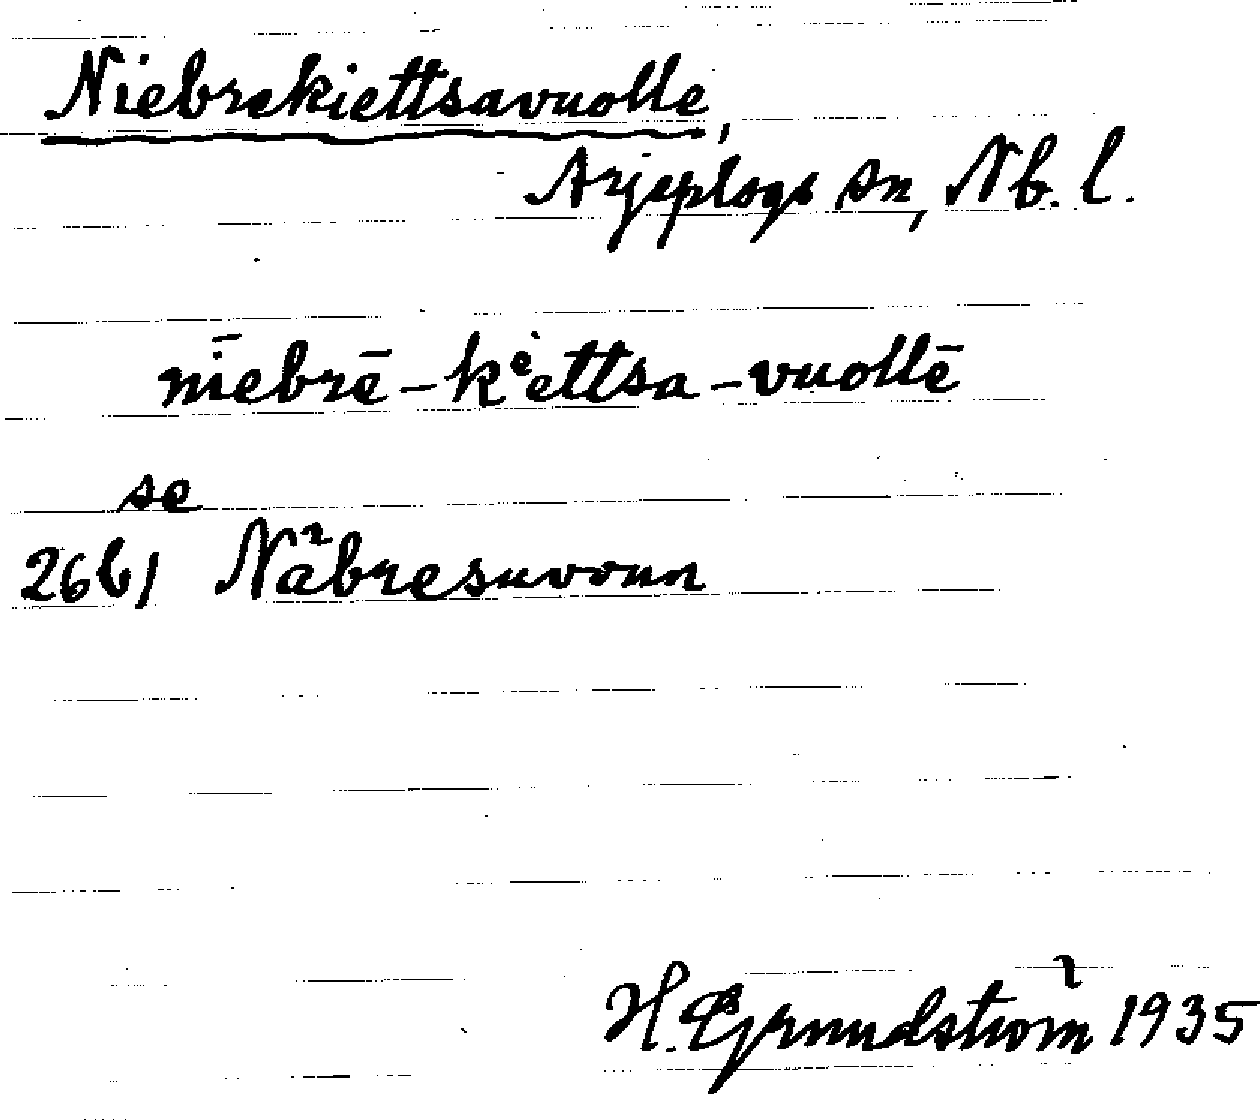 Niebrekiettsavuolle,
Arjeplogs sn, Nb. l.
niebrē-kiettsa-vuollē
se
266) Näbresuvoun
H. Grundström 1935